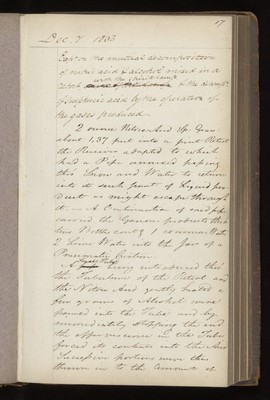 17
Dec. 7 1803
Expt on the mutual decomposition
of nitric acid & alcohol mixed in a
with the
retort & the
of sulphuric acid by the operation of
the gases produced.
2 ounces Nitric Acid Sp. Grav.
about 1,37 put into a pint Retort
the Receiver adapted to which
had a Pipe annexed passing
thro Snow and Water to return
into it such part of liquid pro-
duct as might escape through
it. A Continuation of said pipe
carried the Gaseous products thro
lime Bottle cont.g 1 common Water
2 Lime Water into the Jar of a
Pneumatic Cistern.
A Glass Tube
being introduced thro
the Tubulure of the Retort and
the Nitric Acid gently heated a
few grains of Alcohol were
poured into the Tube and by
immediately stopping the end
the effervescence in the Tube
forced its contents into the Acid
Successive portions were thus
thrown in to the amount of